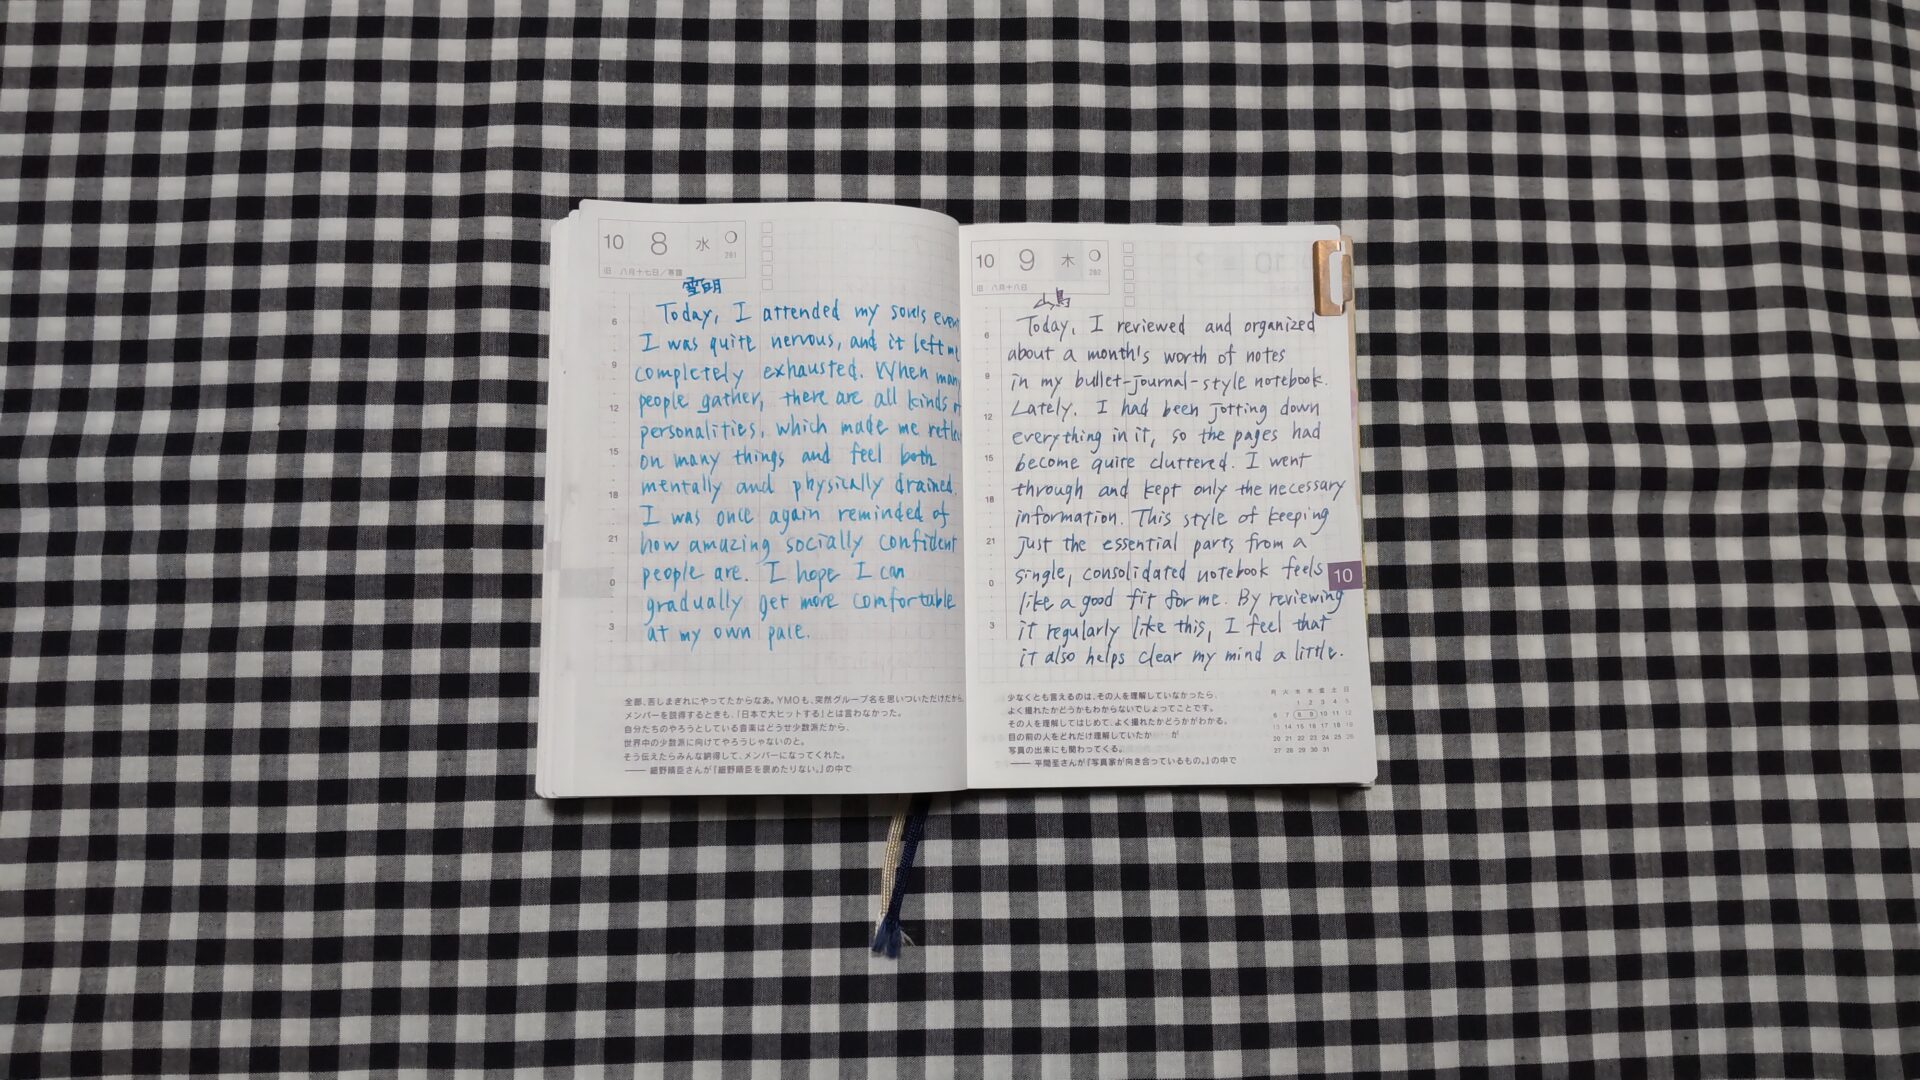 10 8 水
281
旧 八月十七日／寒露
雪明
Today, I attended my souls even
I was quite nervous, and it left me
completely exhausted. When many
people gather, there are all kinds of
personalities, which made me refle
on many things and feel both
mentally and physically drained.
I was once again reminded of
how amazing socially confident
people are. I hope I can
gradually get more comfortable
at my own pace.
6
9
12
15
18
21
0
3
全部、苦しまぎれにやってたからなあ。YMOも、突然グループ名を思いついただけだから、
メンバーを説得するときも、「日本で大ヒットする」とは言わなかった。
自分たちのやろうとしている音楽はどうせ少数派だから、
世界中の少数派に向けてやろうじゃないのと。
そう伝えたらみんな納得して、メンバーになってくれた。
―― 細野晴臣さんが『細野晴臣を褒めたりない。』の中で
10 9 木
282
旧 八月十八日
山鳥
Today, I reviewed and organized
about a month's worth of notes
in my bullet-journal-style notebook.
Lately, I had been jotting down
everything in it, so the pages had
become quite cluttered. I went
through and kept only the necessary
information. This style of keeping
just the essential parts from a
single, consolidated notebook feels
like a good fit for me. By reviewing
it regularly like this, I feel that
it also helps clear my mind a little.
6
9
12
15
18
21
0
3
10
少なくとも言えるのは、その人を理解していなかったら、
よく撮れたかどうかもわからないでしょってことです。
その人を理解してはじめて、よく撮れたかどうかがわかる。
目の前の人をどれだけ理解していたか が
写真の出来にも関わってくる。
―― 平間至さんが『写真家が向き合っているもの。』の中で
月 火 水 木 金 土 日
1 2 3 4 5
6 7 8 9 10 11 12
13 14 15 16 17 18 19
20 21 22 23 24 25 26
27 28 29 30 31